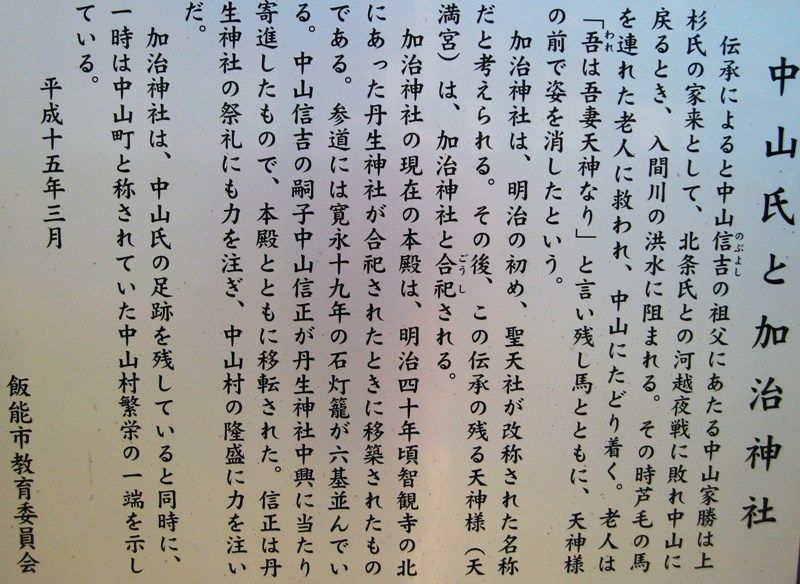 中山氏と加治神社
伝承によると中山信吉の祖父にあたる中山家勝は上
のぶよし
杉氏の家来として、北条氏との河越夜戦に敗れ中山に
戻るとき、入間川の洪水に阻まれる。その時芦毛の馬
を連れた老人に救われ、中山にたどり着く。老人は
「吾は吾妻天神なり」と言い残し馬とともに、天神様
われ
の前で姿を消したという。
加治神社は、明治の初め、聖天社が改称された名称
だと考えられる。その後、この伝承の残る天神様（天
満宮）は、加治神社と合祀される。
ごうし
加治神社の現在の本殿は、明治四十年頃智観寺の北
にあった丹生神社が合祀されたときに移築されたもの
である。参道には寛永十九年の石灯籠が六基並んでい
る。中山信吉の嗣子中山信正が丹生神社中興に当たり
寄進したもので、本殿とともに移転された。信正は丹
生神社の祭礼にも力を注ぎ、中山村の隆盛に力を注い
だ。
加治神社は、中山氏の足跡を残していると同時に、
一時は中山町と称されていた中山村繁栄の一端を示し
ている。
平成十五年三月
飯能市教育委員会